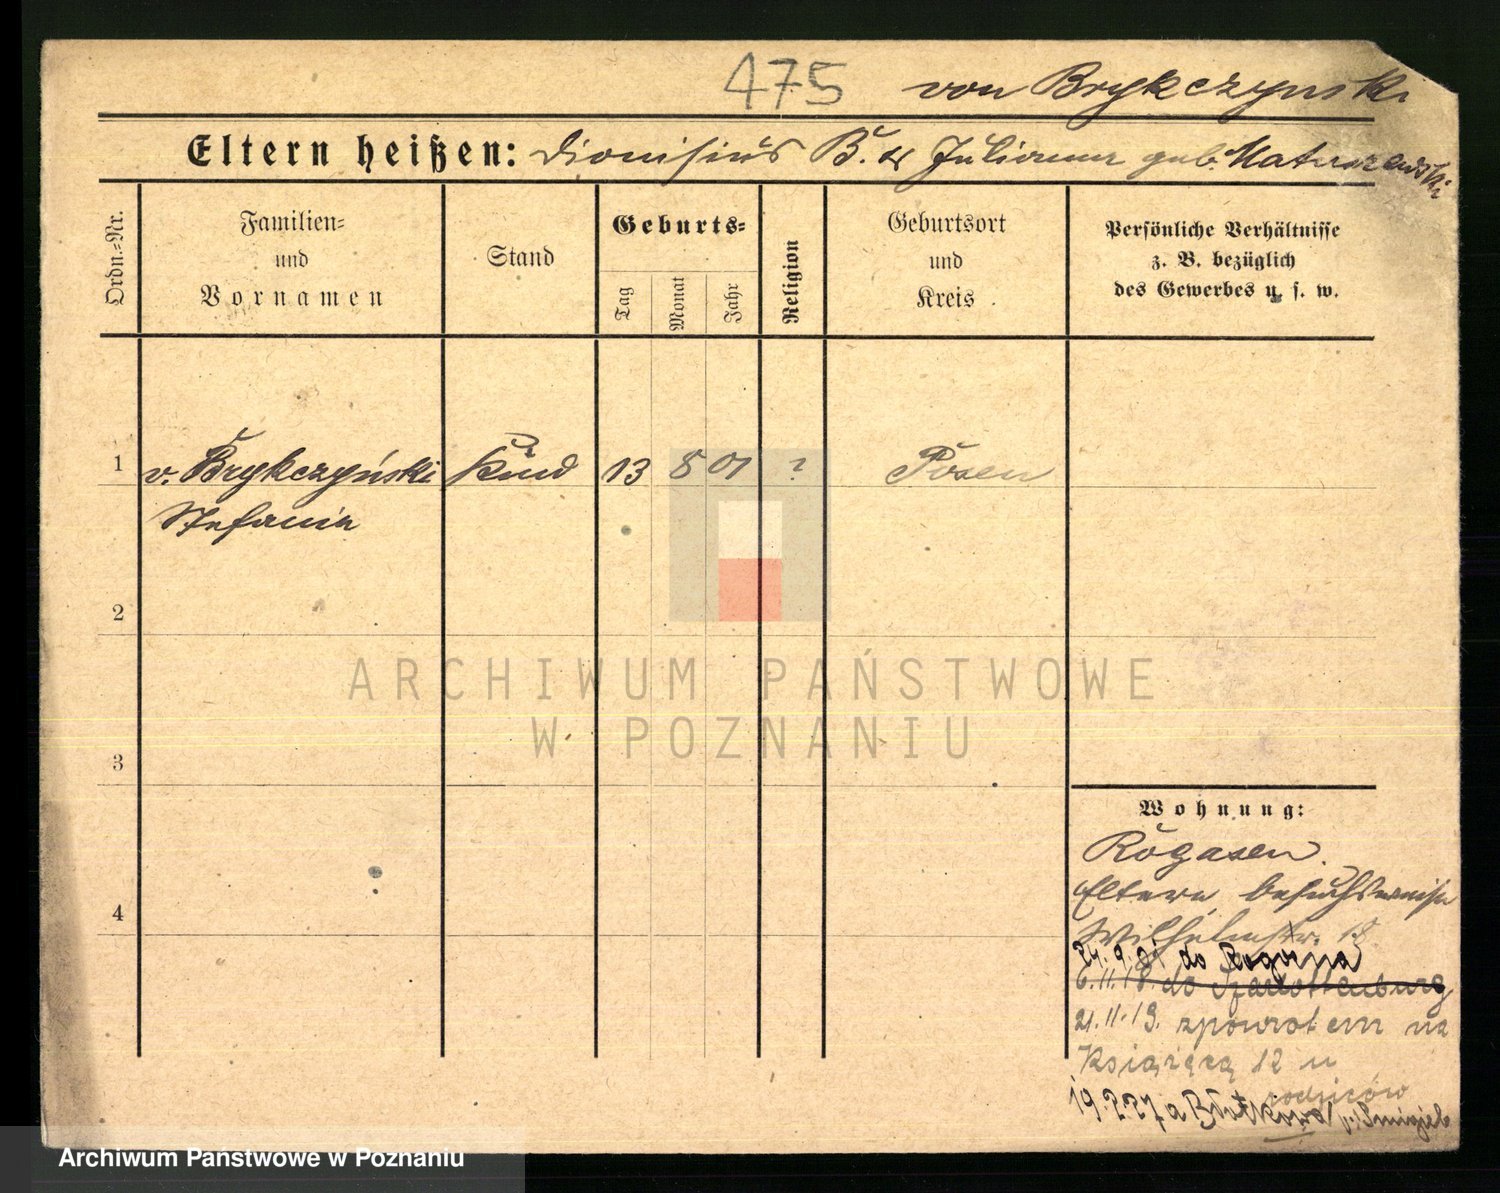 475 von Brykczynski
Eltern heißen: Dionisius B. u. Julianna geb. Matuszewski
Ordn.=Nr.
Familien=
und
Vornamen
Stand
Geburts=
Tag
Monat
Jahr
Religion
Geburtsort
und
Kreis
Persönliche Verhältnisse
z. B. bezüglich
des Gewerbes u. s. w.
1 v. Brykczyński Kind 13 8 01 ? Posen
Stefania
2
3
4
Wohnung:
Rogasen.
Eltern, besuchsweise
Wilhelmstr. 18
24.9. do Rogoźna
6.11.18. do Szarlottenburg
21.11.19. zpowrotem na
Książęcą 12 u
rodziców
19.2.27 a
ARCHIWUM PAŃSTWOWE
W POZNANIU
Archiwum Państwowe w Poznaniu